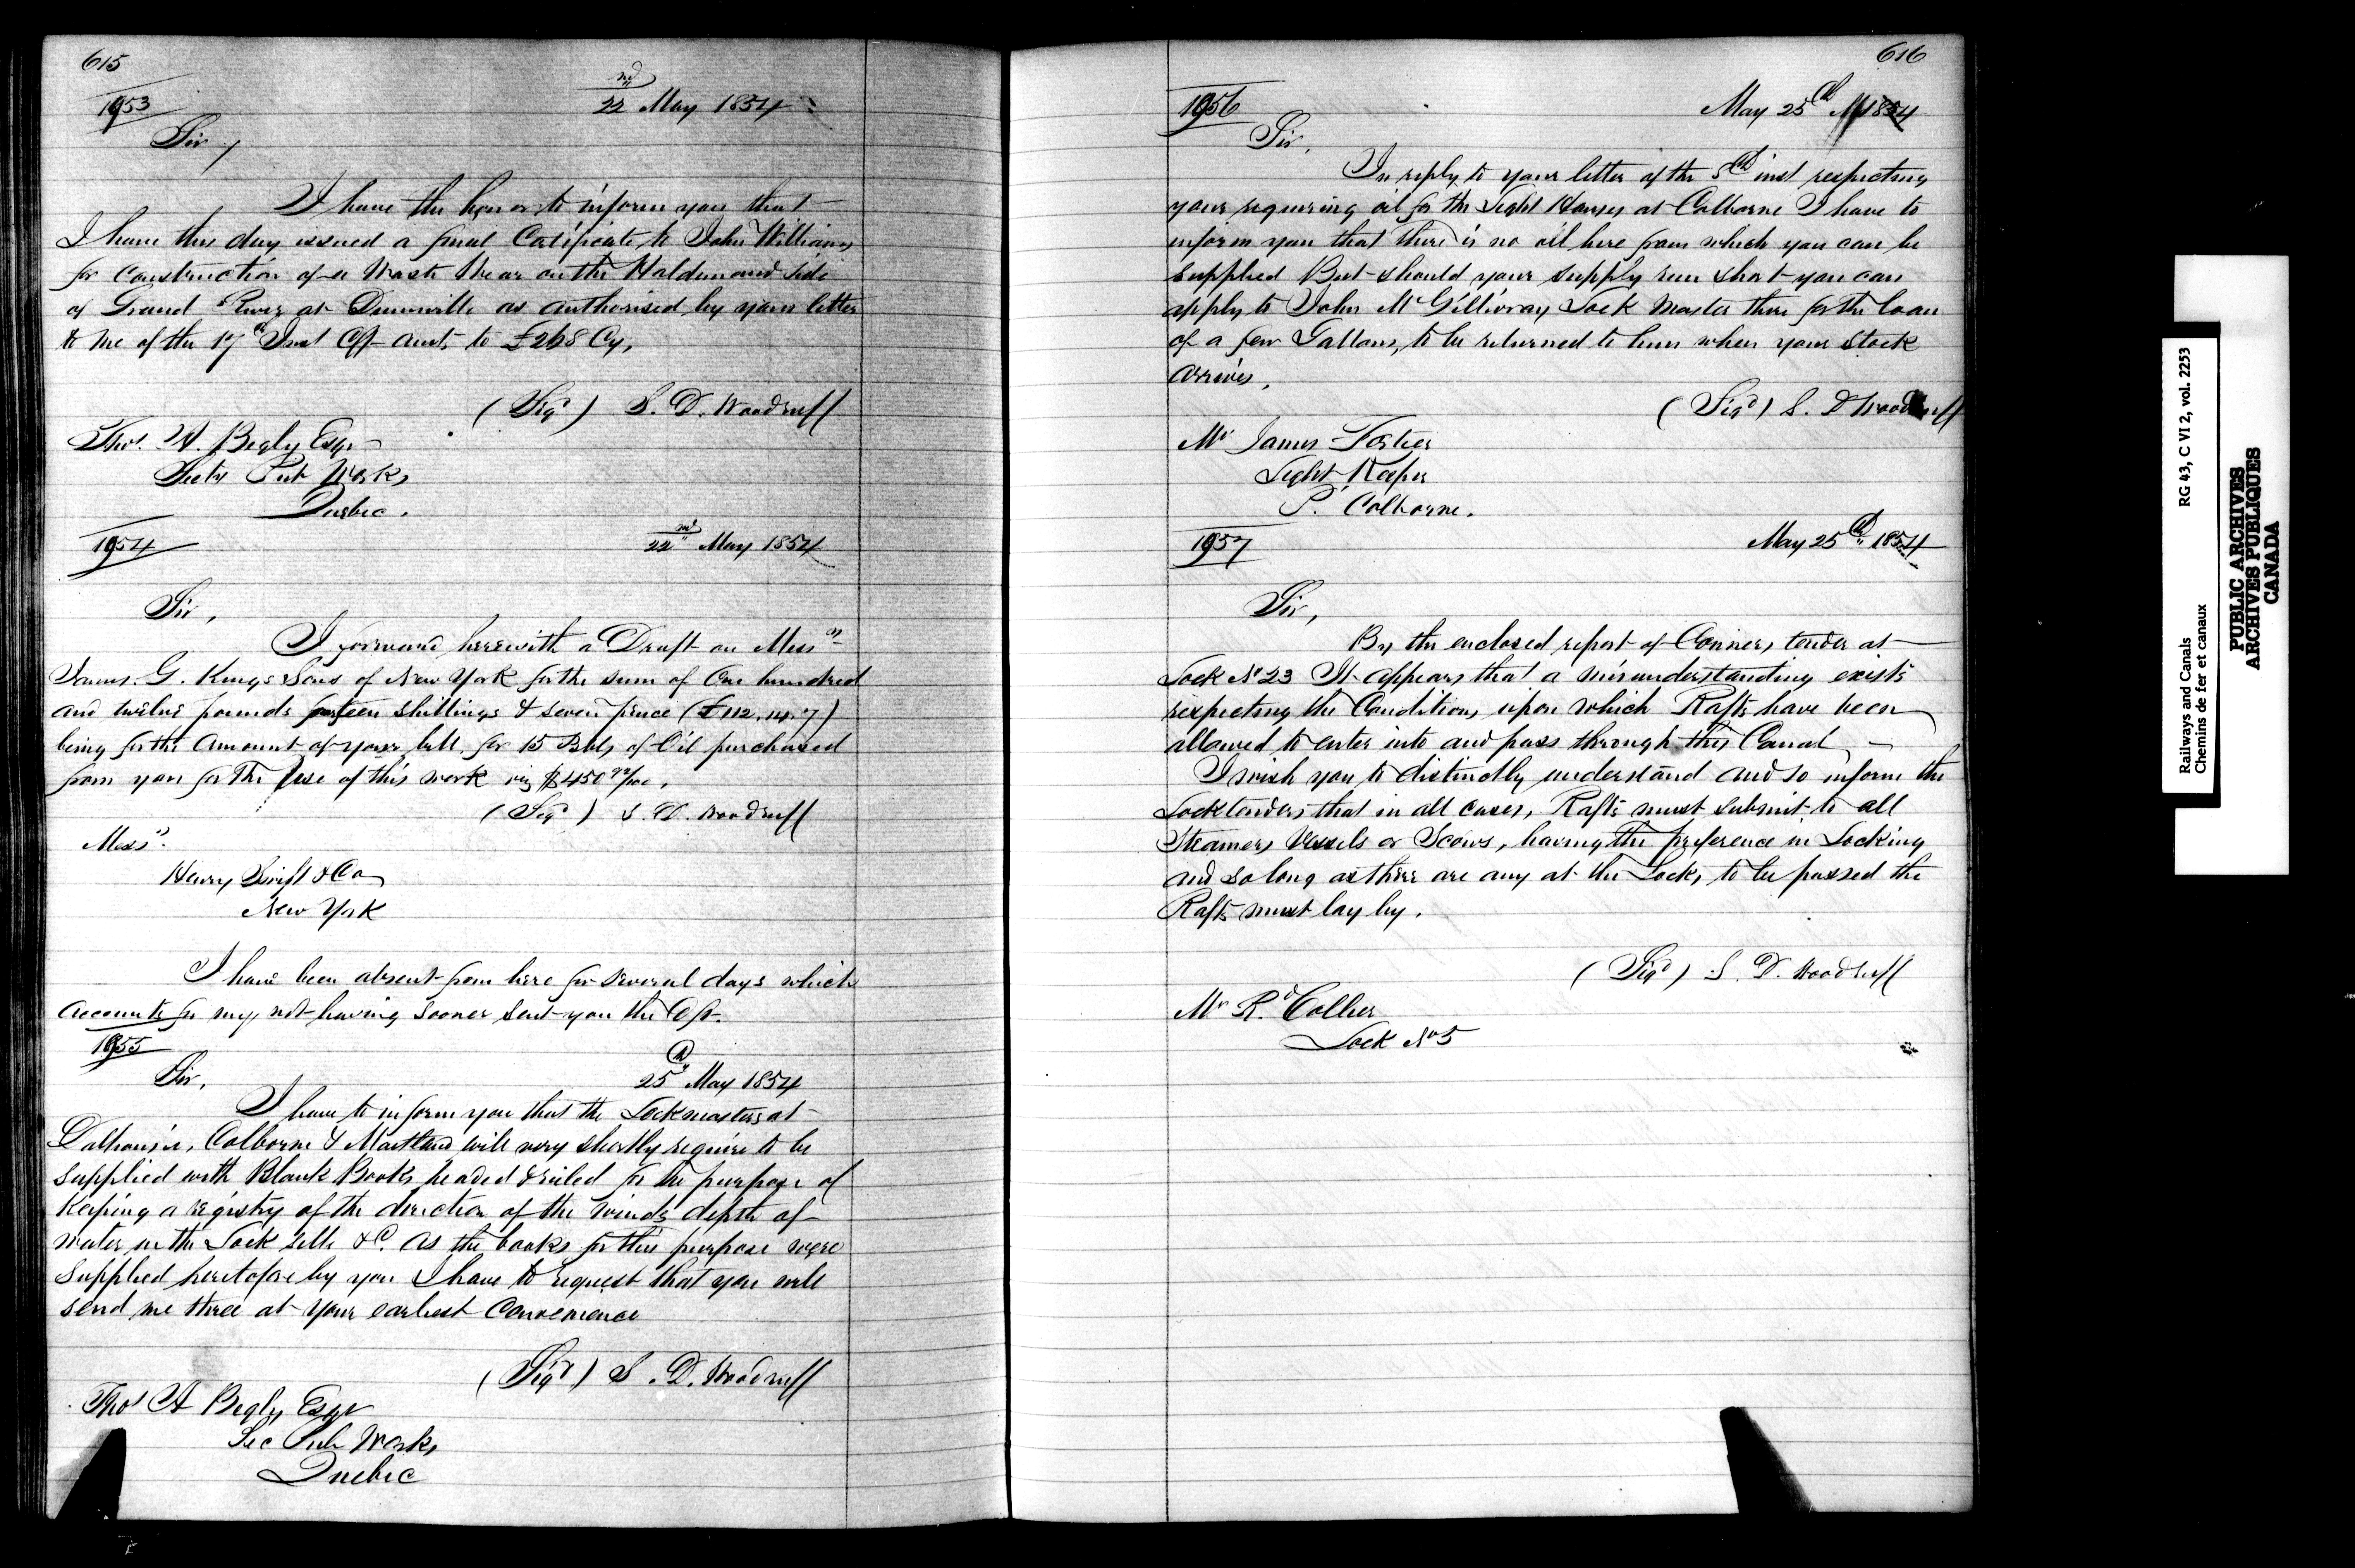 615
1953
22nd May 1854
Sir,
I have the honor to inform you that
I have this day issued a final Certificate to John Williams
for Construction of a Waste Wear on the Haldimand Side
of Grand River at Dunnville as authorised by your letter
to me of the 17th Inst Cft amts to £268 Cy,
(Sigd) S. D. Woodruff
Thos. A. Begly Esqr
Secty Pub Works
Quebec.
1954
22nd May 1854
Sir,
I forward herewith a Draft on Messrs
James. G. Kings Sons of New York for the sum of One hundred
and twelve pounds fourteen shillings & seven pence (£112.14.7)
being for the Amount of your bill, for 15 Bbls of Oil purchased
from you for the Use of this work viz $450 92/100.
(Sigd) S. D. Woodruff
Messrs.
Henry Swift & Co
New York
I have been absent from here for several days which
accounts for my not having sooner sent you the Dft.
1955
Sir,
25th May 1854
I have to inform you that the Lockmasters at
Dalhousie, Colborne & Maitland will very shortly require to be
supplied with Blank Books headed & ruled for the purpose of
Keeping a registry of the direction of the winds depth of
water on the Lock sills &c. as the books for this purpose were
supplied heretofore by you I have to request that you will
send me three at your earliest Convenience
(Sigd) S. D. Woodruff
Thos A Begly Esqr
Sec Pub Works,
Quebec
616
1956
May 25th 1854
Sir,
In reply to your letter of the 5th inst respecting
your requiring oil for the Light Houses at Colborne I have to
inform you that there is no oil here from which you can be
supplied But should your supply run short you can
apply to John McGillivray Lock Master there for the loan
of a few Gallons, to be returned to him when your stock
arrives.
(Sigd) S. D Woodruff
Mr James Fortier
Light Keeper
P. Colborne.
1957
May 25th 1854
Sir,
By the enclosed report of Conners, tender at
Lock No 23 It appears that a misunderstanding exists
respecting the Conditions upon which Rafts have been
allowed to enter into and pass through this Canal
I wish you to distinctly understand and so inform the
Locktenders that in all cases, Rafts must submit to all
Steamers Vessels or Scows, having the preference in Locking
and so long as there are any at the Locks to be passed the
Rafts must lay by.
(Sigd) S. D. Woodruff
Mr Rd Collier
Lock No 5
Railways and Canals RG 43, C VI 2, vol. 2253
Chemins de fer et canaux
PUBLIC ARCHIVES
ARCHIVES PUBLIQUES
CANADA